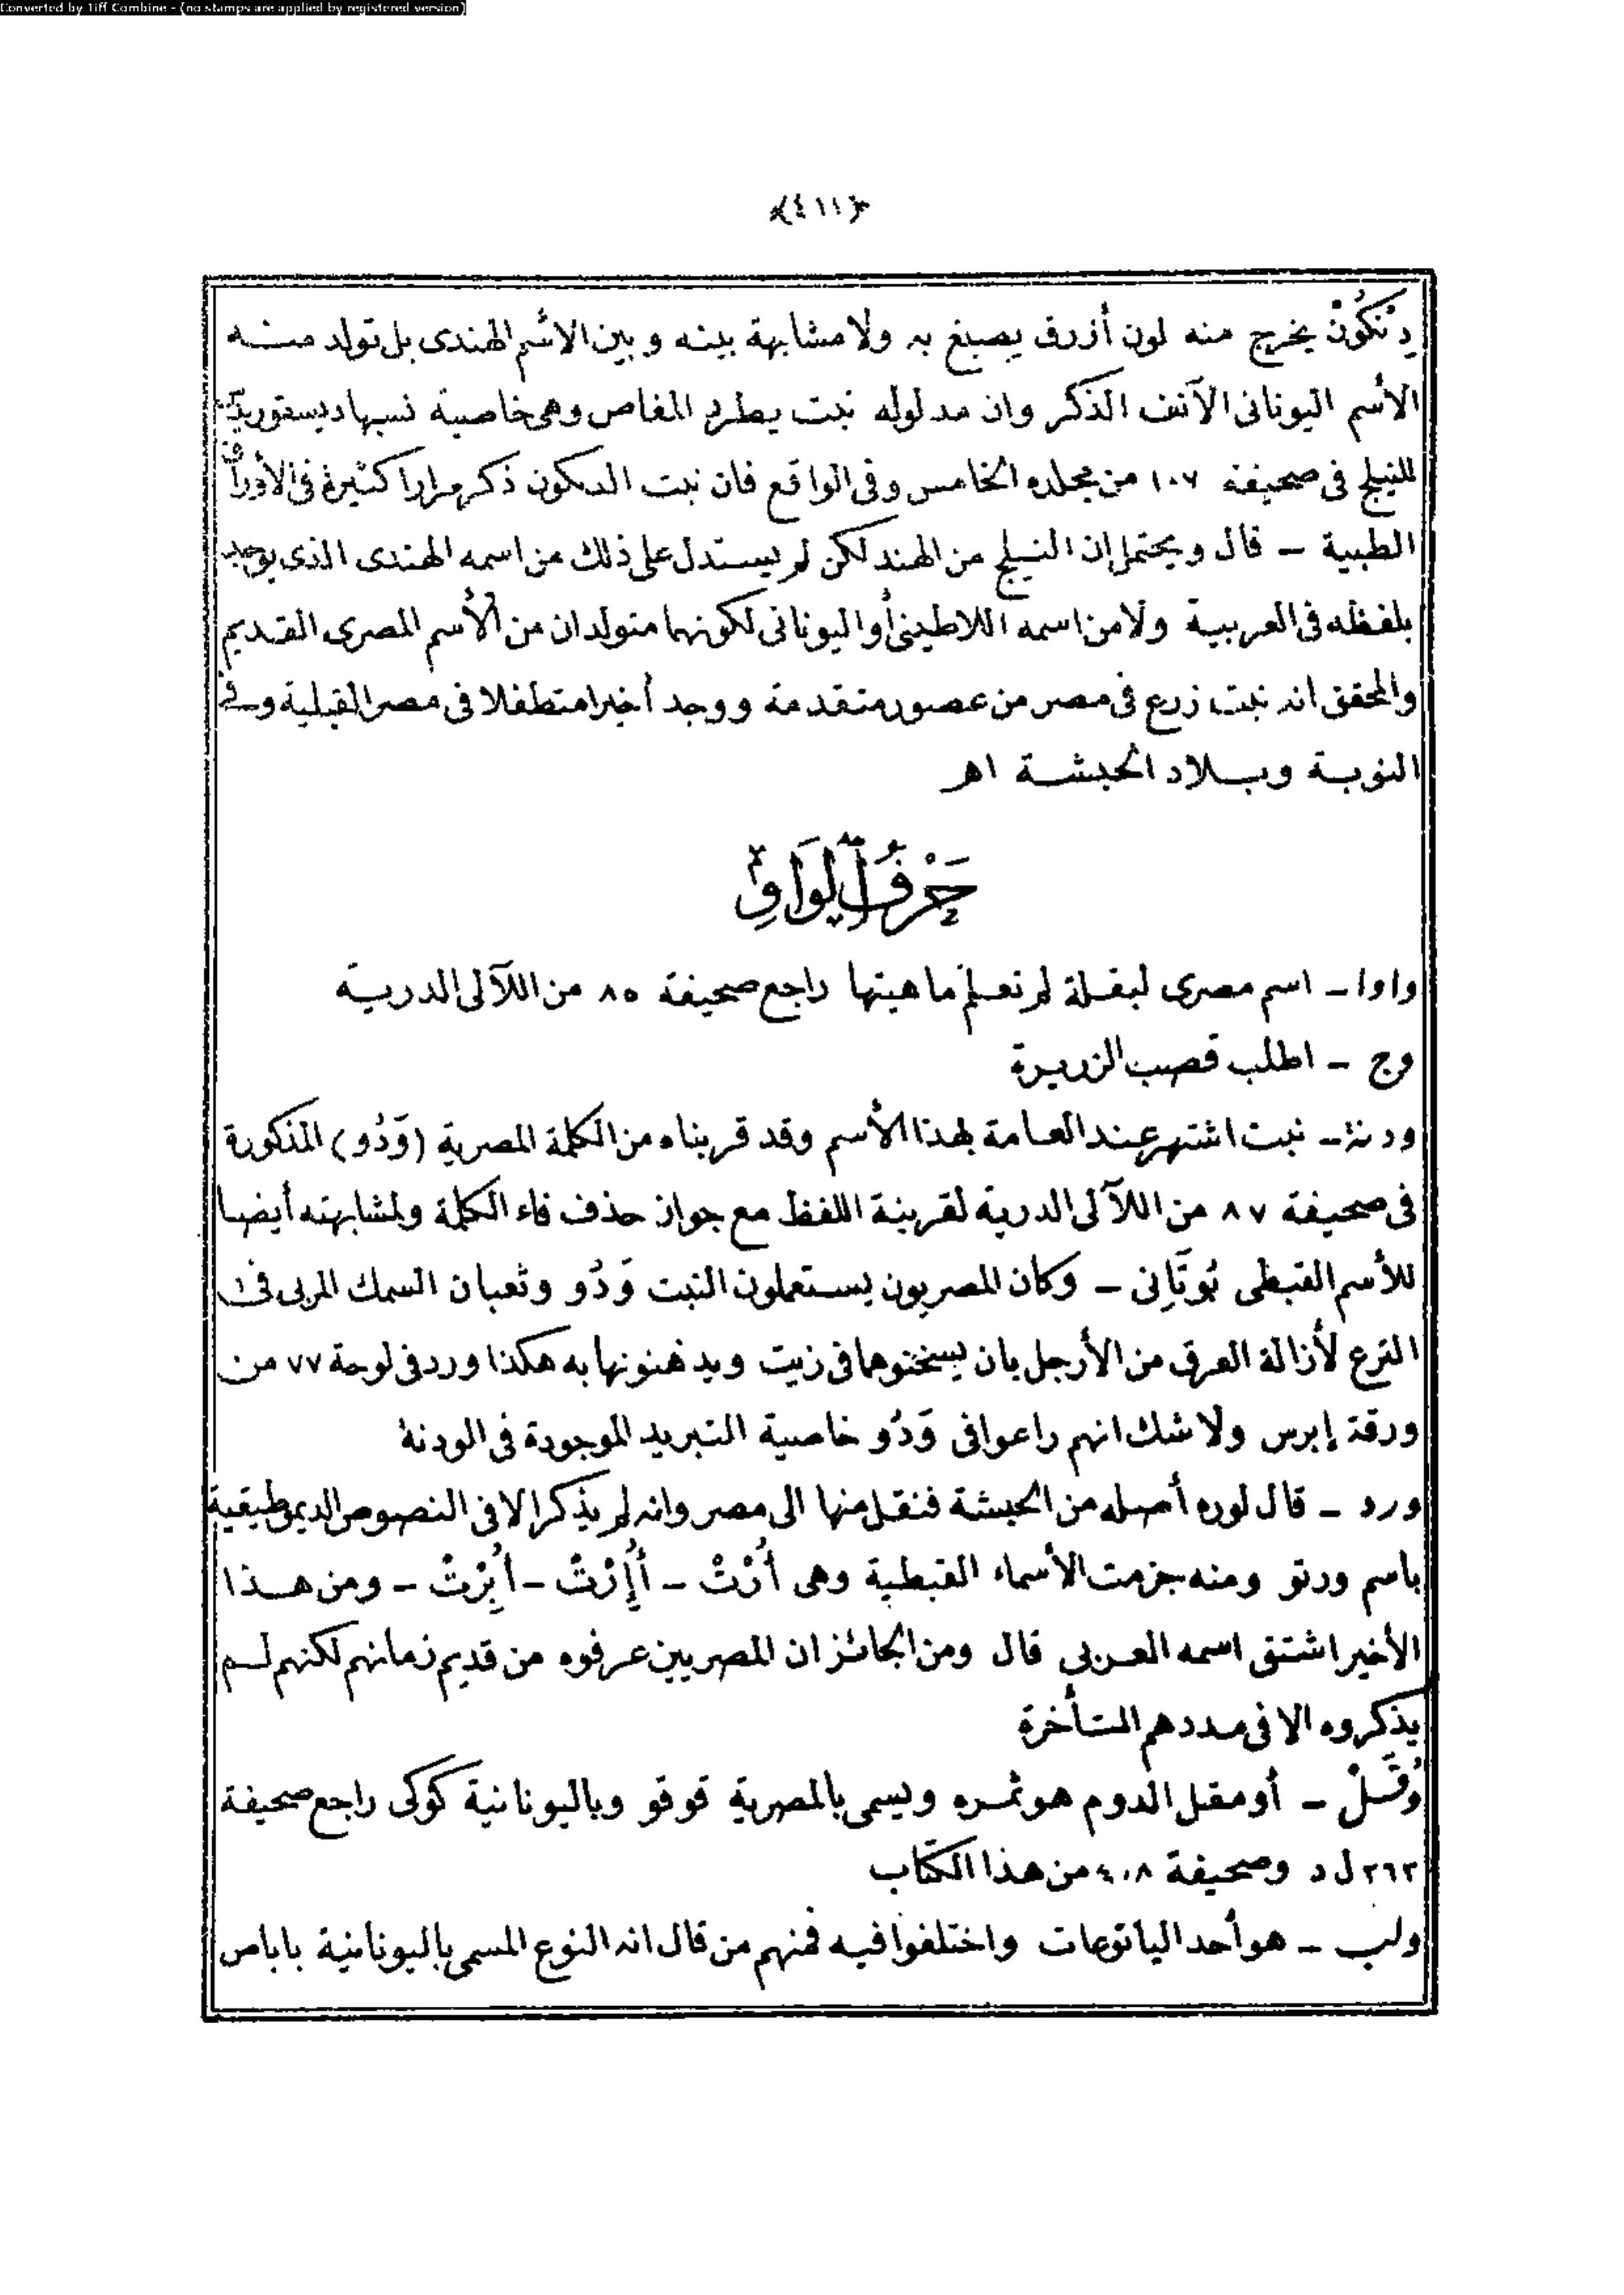 Converted by Tiff Combine - (no stamps are applied by registered version)
﴿٤١١﴾
دِنْكُونْ يخرج منه لون أزرق يصبغ به ولا مشابهة بينه وبين الاسم الهندى بل تولد منه
الأسم اليونانى الآنف الذكر وان مدلوله نبت يطرد المغاص وهى خاصية نسبها ديسقوريدس
للنيلج فى صحيفة ١٠٧ من مجلده الخامس وفى الواقع فان نبت الدنكون ذكر مرارا كثيرة فى الأوراق
الطبية – قال ويحتمل ان النيلج من الهند لكن لم يستدل على ذلك من اسمه الهندى الذى يوجد
بلفظه فى العربية ولا من اسمه اللاطينى أو اليونانى لكونهما متولدان من الأسم المصرى القديم
والمحقق انه نبت زرع فى مصر من عصور متقدمة ووجد أخيرا متطفلا فى مصر القبلية وفى
النوبة وبلاد الحبشة اهـ
حَرْفُ الوَاوِ
واوا – اسم مصرى لبقلة لم نعلم ماهيتها راجع صحيفة ٨٥ من اللآلى الدرية
وج – اطلب قصب الزريرة
ودنة – نبت اشتهر عند العامة بهذا الأسم وقد قربناه من الكلمة المصرية (وَدُو) المذكورة
فى صحيفة ٨٧ من اللآلى الدرية لقرينة اللفظ مع جواز حذف فاء الكلمة ولمشابهته أيضا
للأسم القبطى بُوتَانِى – وكان المصريون يستعملون النبت وَدُو وثعبان السمك المربى فى
الترع لأزالة العرق من الأرجل بان يسخنوهما فى زيت ويدهنونها به هكذا ورد فى لوحة ٧٧ من
ورقة إبرس ولا شك انهم راعوا فى وَدُو خاصية التبريد الموجودة فى الودنة
ورد – قال لوره أصله من الحبشة فنقل منها الى مصر وانه لم يذكر الا فى النصوص الديموطيقية
باسم ورتو ومنه جزمت الأسماء القبطية وهى أُرْتْ – أُإِرْتْ – أُبِرْتْ – ومن هذا
الأخير اشتق اسمه العربى قال ومن الجائز ان المصريين عرفوه من قديم زمانهم لكنهم لم
يذكروه الا فى مددهم المتأخرة
وُقَلْ – أو مقل الدوم هو ثمره ويسمى بالمصرية قوقو وباليونانية كوكى راجع صحيفة
٢٦٢ ل د وصحيفة ٤٠٨ من هذا الكتاب
ولب – هو أحد اليانوعات واختلفوا فيه فمنهم من قال انه النوع المسمى باليونانية باباص